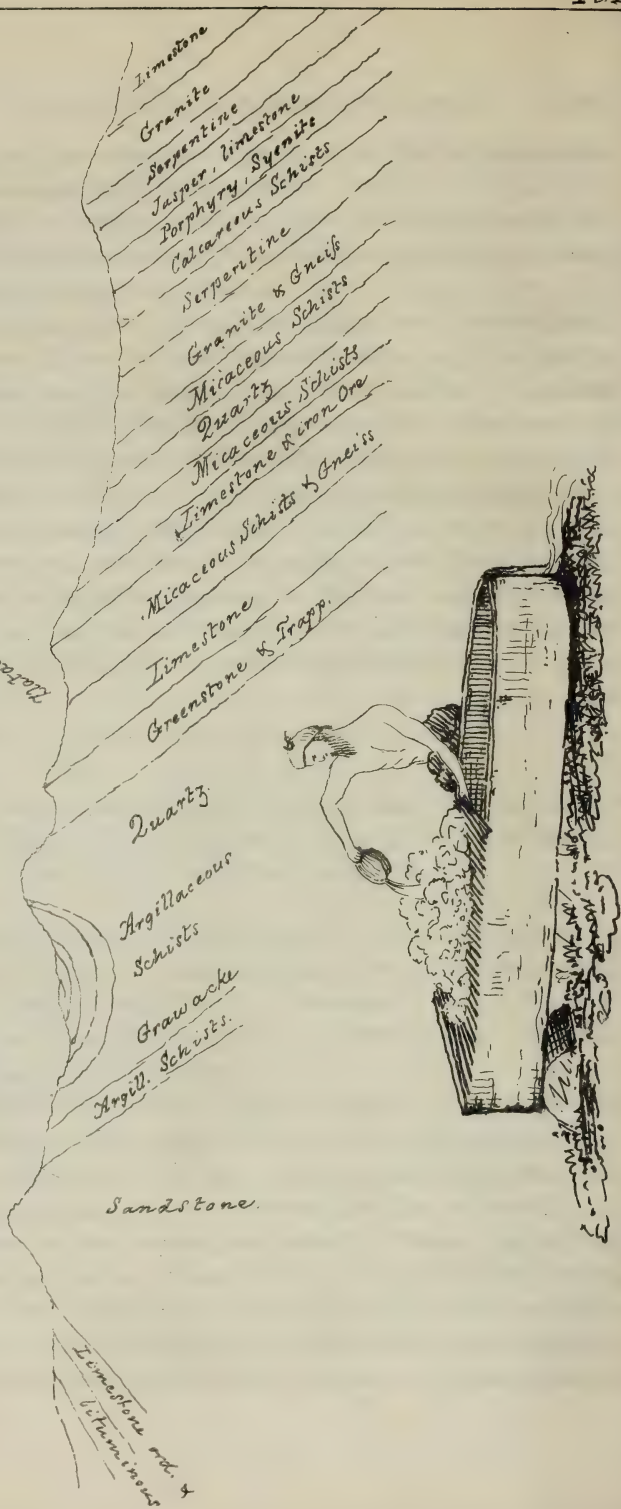 Limestone
Granite
Serpentine
Jasper, limestone
Porphyry, Syenite
Calcareous Schists
Serpentine
Granite & Gneiss
Micaceous Schists
Quartz
Micaceous Schists
Limestone & iron Ore
Micaceous Schists & Gneiss
Limestone
Greenstone & Trapp.
Quartz.
Argillaceous
Schists
Grawacke
Argill. Schists.
Sandstone.
Limestone ord. &
bituminous